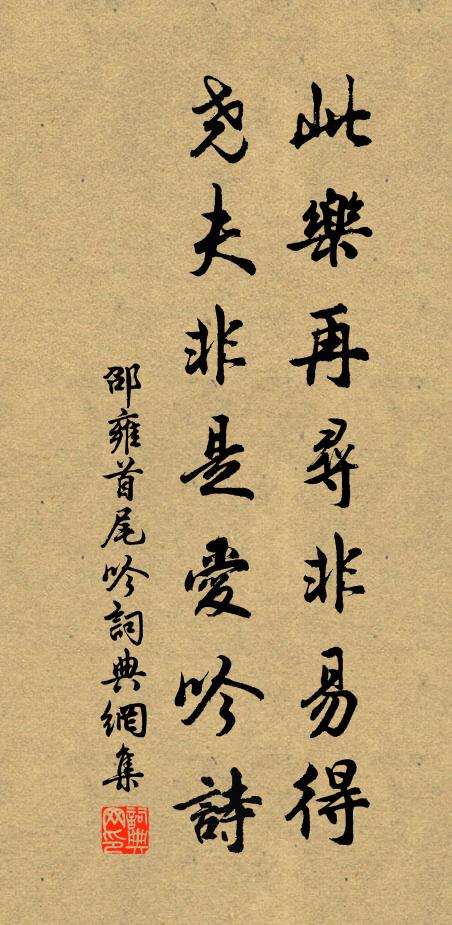 此樂再尋非易得
堯夫非是愛吟詩
邵雍首尾吟詞典網集
詞典網印